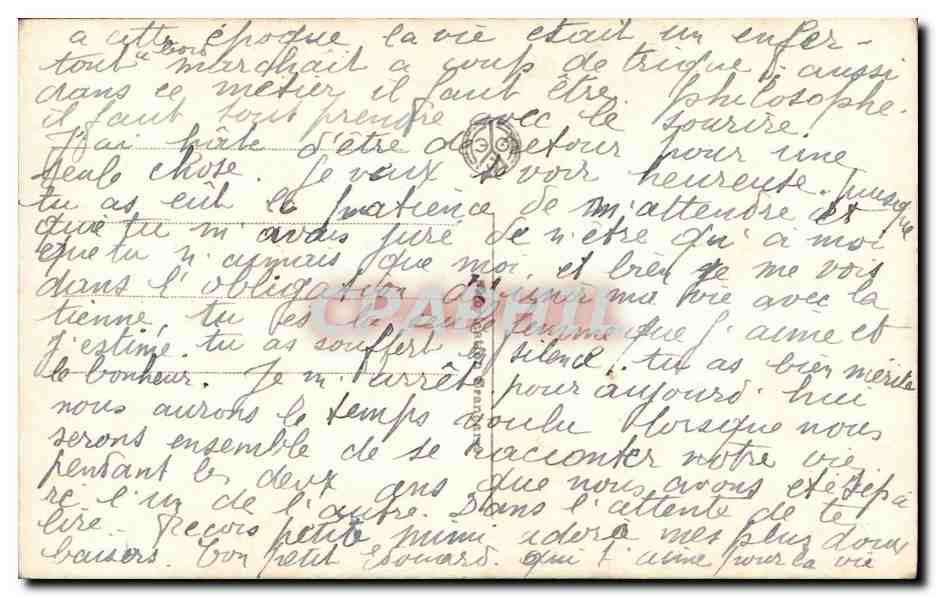 a cette époque la vie etait un enfer -
tout marchait a coup de trique. aussi
dans ce métier il faut être philosophe.
il faut tout prendre avec le sourire.
J'ai hâte d'être de retour pour une
seule chose. Je veux te voir heureuse. puisque
tu as eut la patience de m'attendre et
que tu m'avais juré de n'être qu'à moi
que tu n'aimais que moi, et bien je me vois
dans l'obligation d'unir ma vie avec la
tienne, tu es la seule femme que j'aime et
j'estime. tu as souffert en silence. tu as bien mérité
le bonheur. Je m'arrête pour aujourd'hui
nous aurons le temps voulu lorsque nous
serons ensemble de se raconter notre vie
pendant les deux ans que nous avons eté sépa
ré l'un de l'autre. Dans l'attente de te
lire. Reçois petite mimi adoré mes plus doux
baisers. ton petit Edouard. qui t'aime pour la vie
CPAPHIL